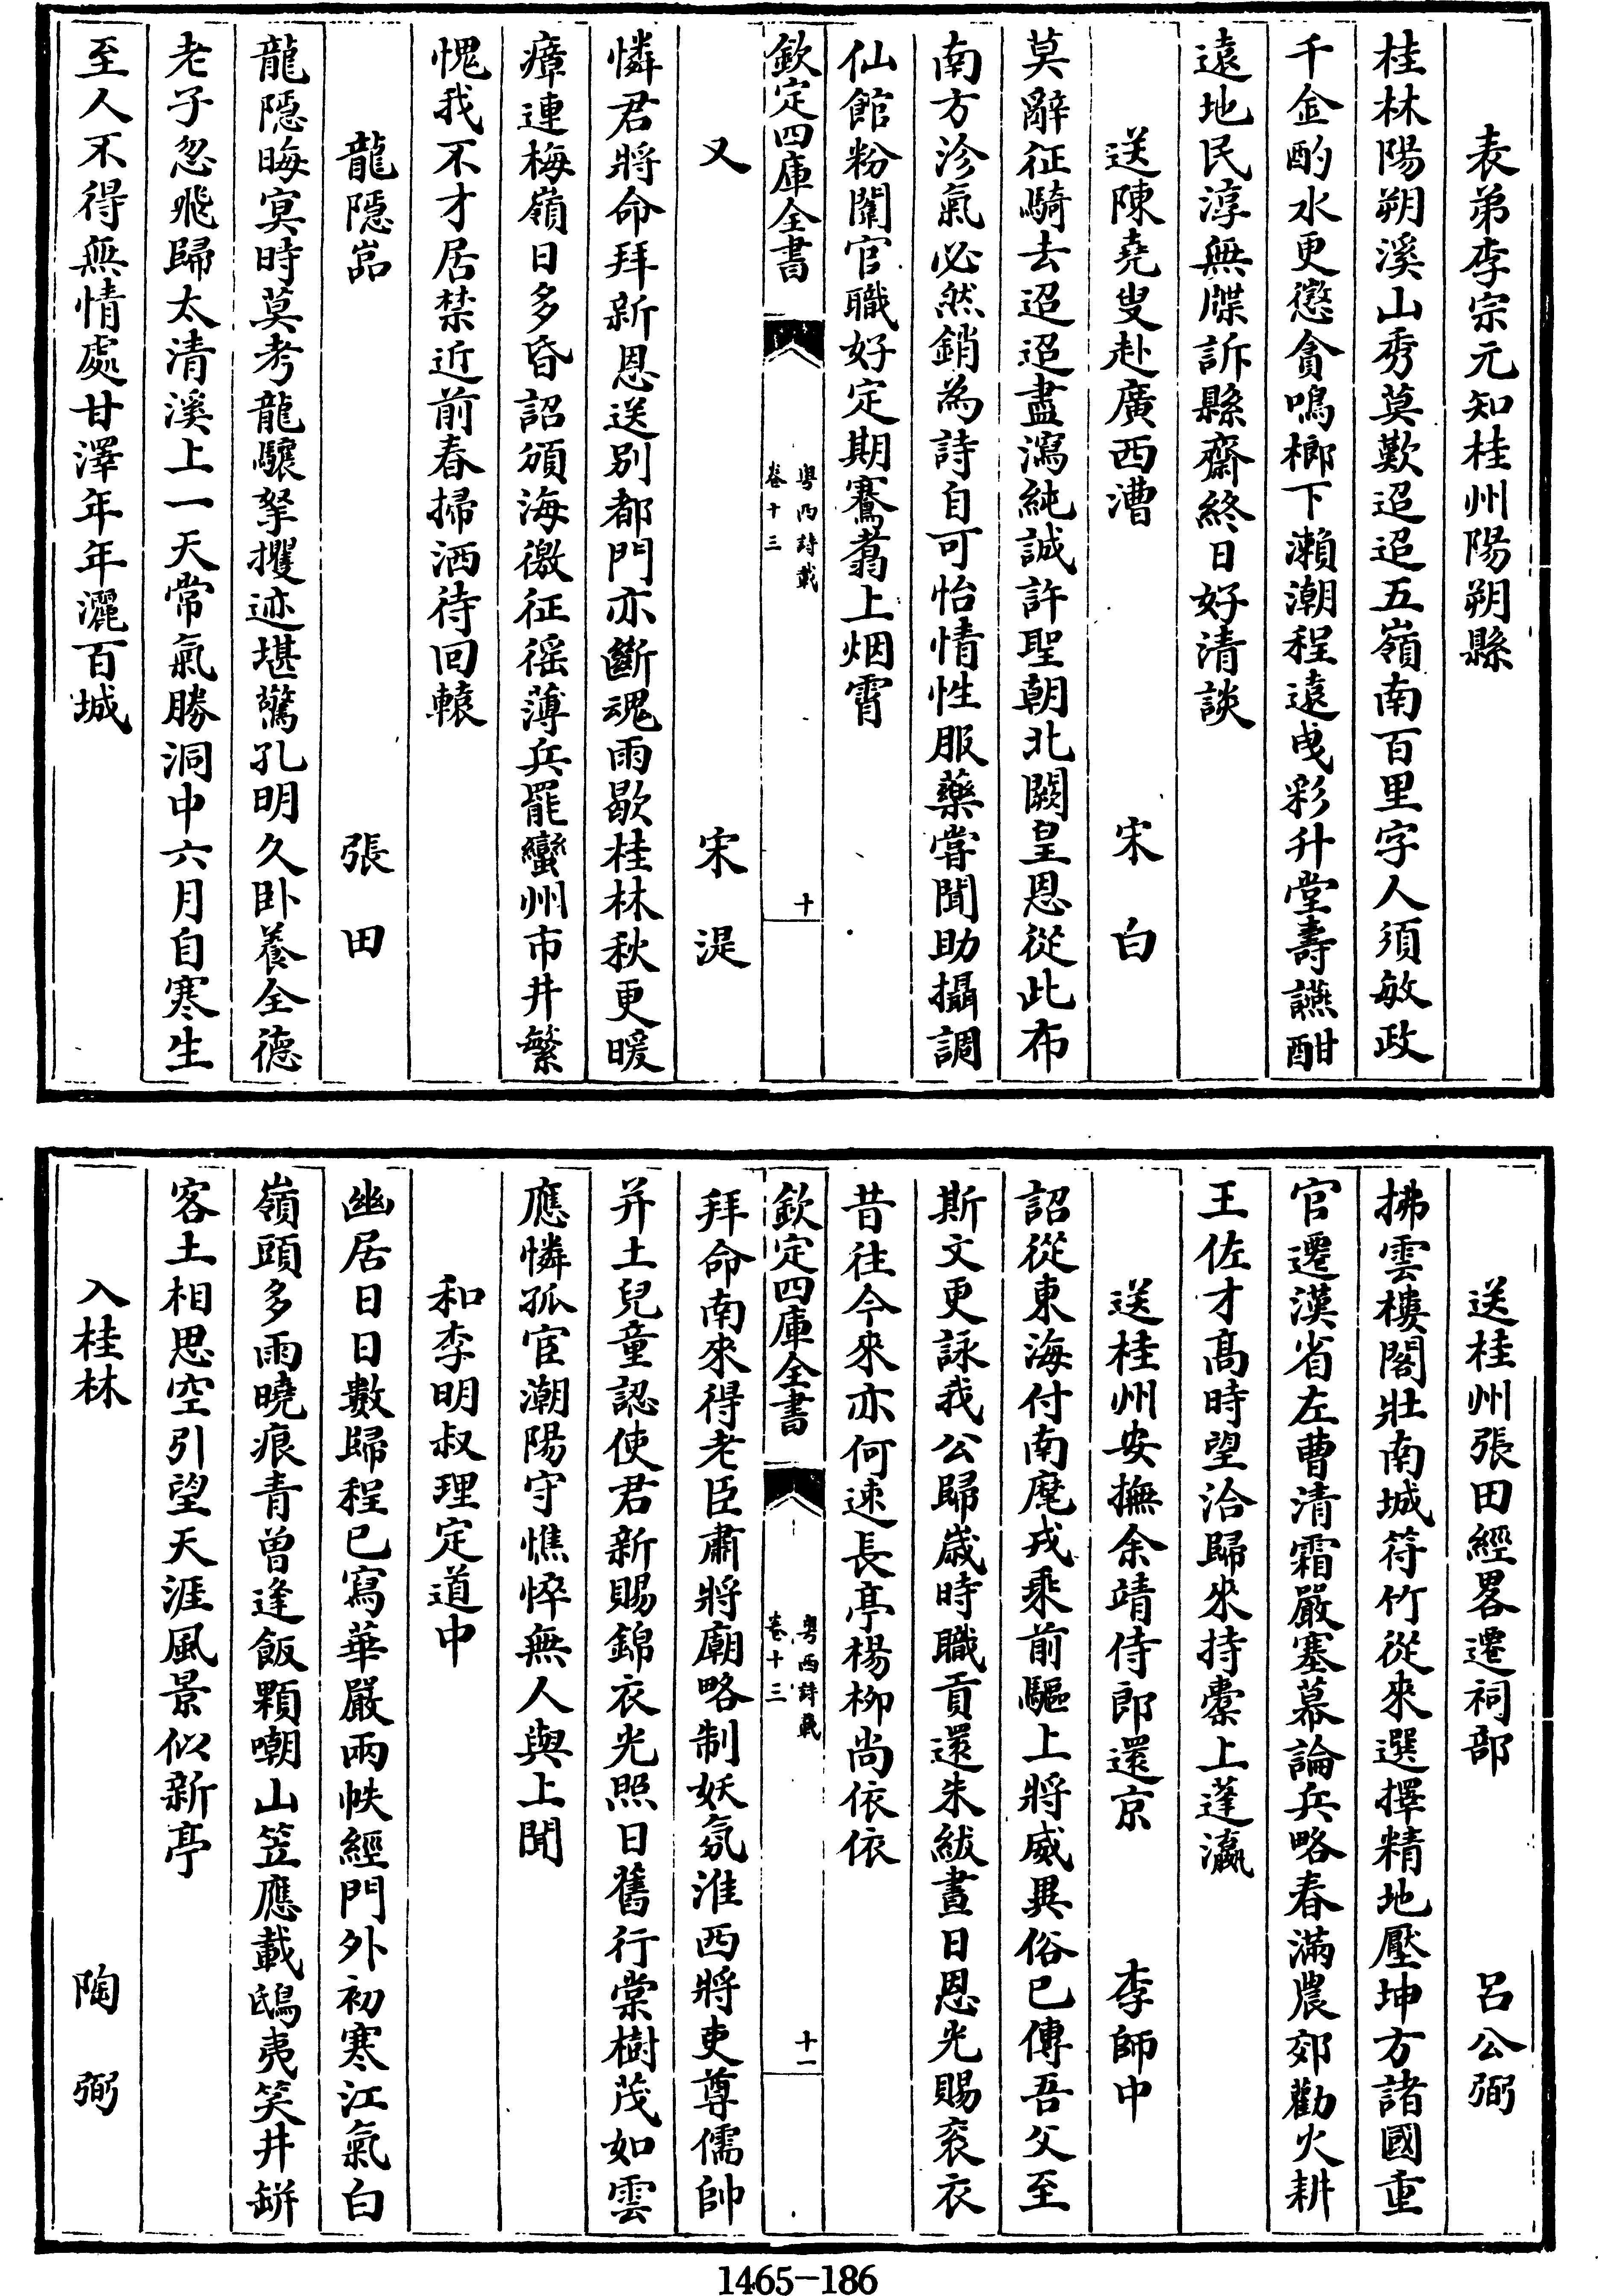 表弟李宗元知桂州陽朔縣
桂林陽朔溪山秀莫歎迢迢五嶺南百里字人須敏政
千金酌水更懲貪鳴榔下瀨潮程遠曵彩升堂壽讌酣
遠地民淳無牒訴縣齋終日好清談
送陳堯叟赴廣西漕 宋白
莫辭征騎去迢迢盡瀉純誠許聖朝北闕皇恩從此布
南方沴氣必然銷為詩自可怡情性服藥甞聞助攝調
仙館粉闈官職好定期騫翥上烟霄
欽定四庫全書 粵西詩載 卷十三 十
又 宋湜
憐君將命拜新恩送别都門亦斷魂雨歇桂林秋更暖
瘴連梅嶺日多昏詔頒海徼征徭薄兵罷蠻州市井繁
愧我不才居禁近前春掃洒待回轅
龍隱嵓 張田
龍隱晦冥時莫考龍驤拏攫迹堪驚孔明久卧養全德
老子忽飛歸太清溪上一天常氣勝洞中六月自寒生
至人不得無情處甘澤年年灑百城
送桂州張田經畧遷祠部 呂公弼
拂雲樓閣壯南城符竹從來選擇精地壓坤方諸國重
官遷漢省左曹清霜嚴塞幕論兵略春滿農郊勸火耕
王佐才髙時望洽歸來持槖上蓬瀛
送桂州安撫余靖侍郎還京 李師中
詔從東海付南麾戎乘前驅上將威異俗已傳吾父至
斯文更詠我公歸歲時職貢還朱紱晝日恩光賜衮衣
昔往今來亦何速長亭楊柳尚依依
欽定四庫全書 粵西詩載 卷十三 十一
拜命南來得老臣肅將廟略制妖氛淮西將吏尊儒帥
并土兒童認使君新賜錦衣光照日舊行棠樹茂如雲
應憐孤宦潮陽守憔悴無人與上聞
和李明叔理定道中
幽居日日數歸程已寫華嚴兩帙經門外初寒江氣白
嶺頭多雨曉痕青曾逢飯顆嘲山笠應載鴟夷笑井缾
客土相思空引望天涯風景似新亭
入桂林 陶弼
1465-186